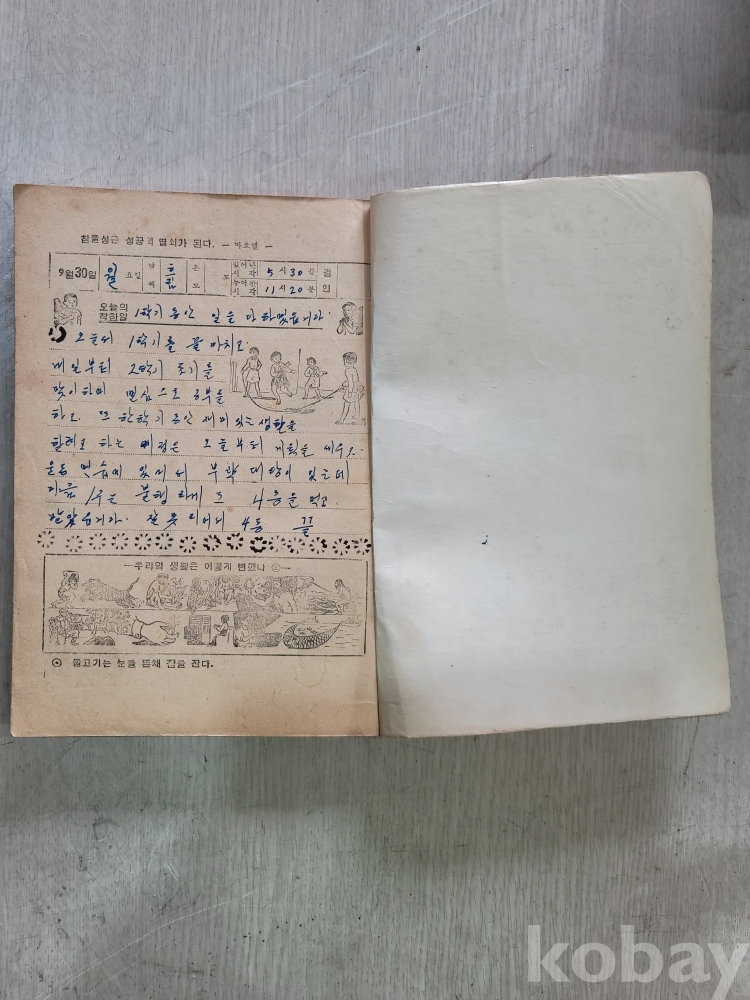 힘물성은 성공의 열쇠가 된다. — 마호멜 —
9월 30일 월 요일 날세 흐림 온도 도 일어난시각 5시 30분 누어잔시각 11시 20분 검인
오늘의 착한일 1학기 동안 일을 다 하였읍니다.
오늘서 1학기를 끝 마치고
내일부터 2학기 를
맞이하며 열심으로 공부를
하고. 또 한학기 동안 재미있는 생활을
할려고 하는 오늘부터 계획을 세우고.
운동 연습에 있어서 부락 대항이 있는데
다음 불행하게도 4등을 먹고.
말았습니다. 잘못 되어서 4등 끝
—우리의 생활은 어떻게 변했나—
⊙ 물고기는 눈을 뜬채 잠을 잔다.
kobay